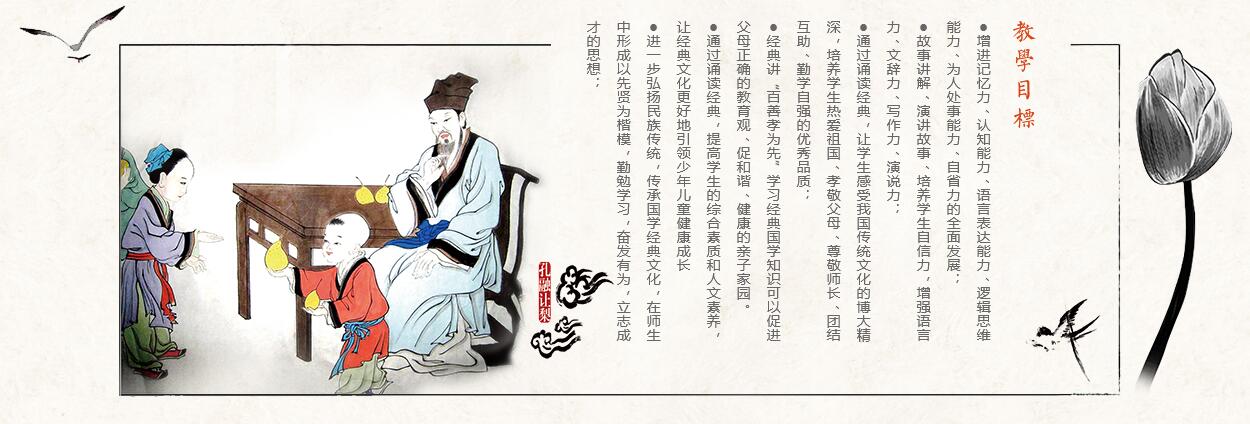 教學目標
●增进记忆力、认知能力、语言表达能力、逻辑思维
能力、为人处事能力、自省力的全面发展；
●故事讲解、演讲故事、培养学生自信力，增强语言
力、文辞力、写作力、演说力；
●通过诵读经典，让学生感受我国传统文化的博大精
深，培养学生热爱祖国、孝敬父母、尊敬师长、团结
互助、勤学自强的优秀品质；
●经典讲“百善孝为先”学习经典国学知识可以促进
父母正确的教育观、促和谐、健康的亲子家园。
●通过诵读经典，提高学生的综合素质和人文素养，
让经典文化更好地引领少年儿童健康成长
●进一步弘扬民族传统，传承国学经典文化，在师生
中形成以先贤为楷模，勤勉学习，奋发有为，立志成
才的思想；
孔融让梨